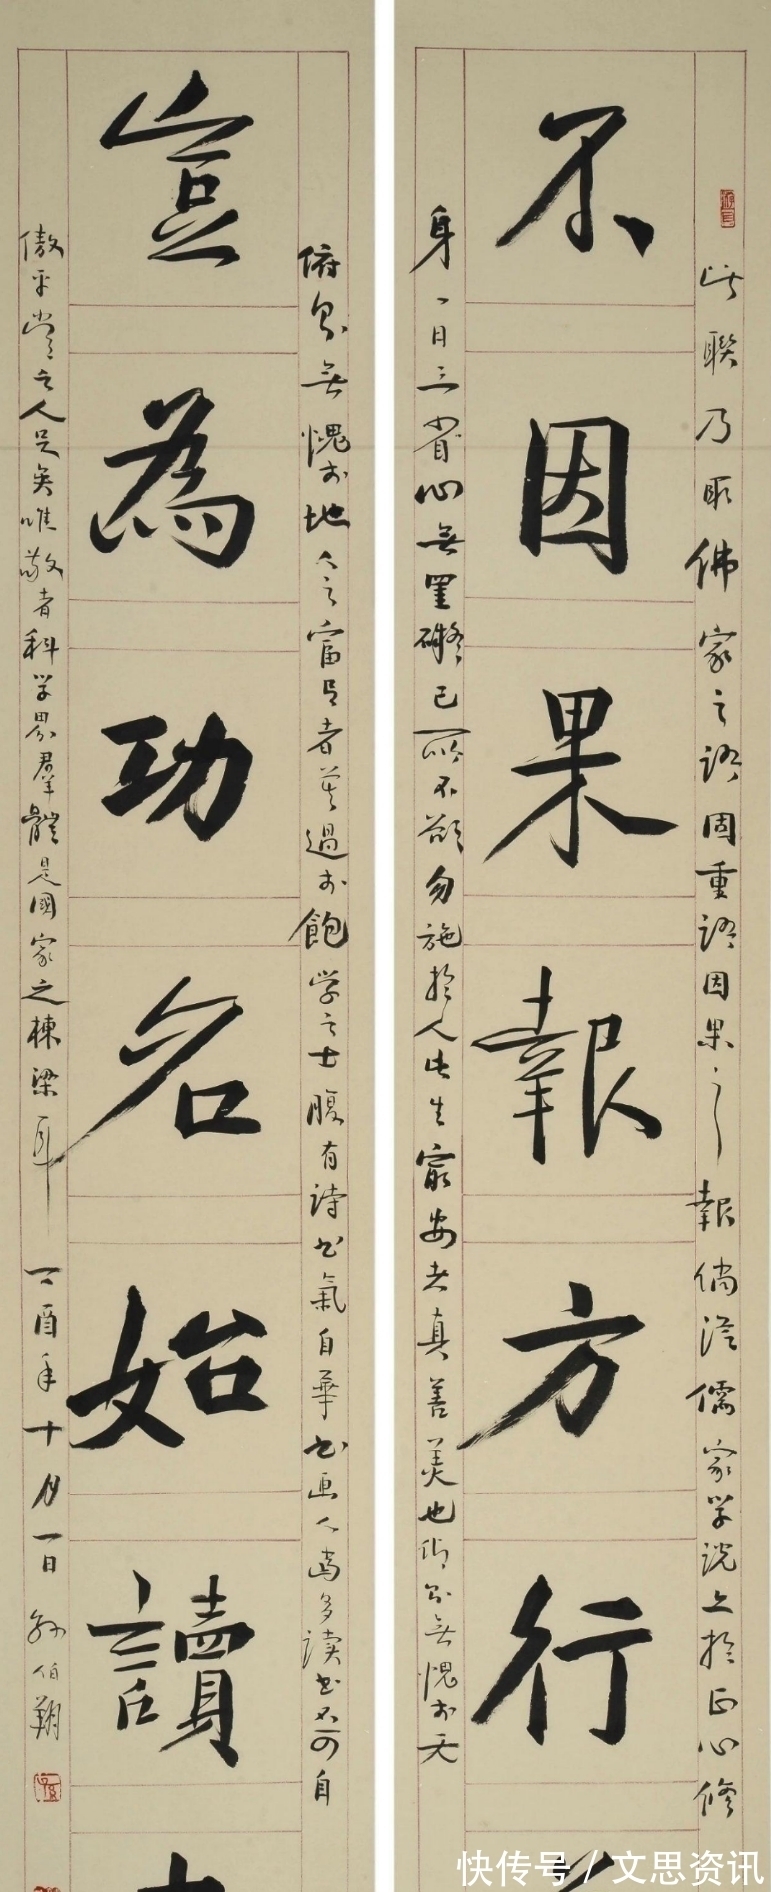 不因果報方行
豈為功名始讀
此聯乃取佛家之語固重語因果之報倘從儒家學説之於正心修
身一日三省心無罣礙己所不欲勿施於人此生寧安去真善美也仰不無愧於天
俯不無愧於地今之富足者莫過於飽学之士腹有詩书氣自華书画人當多读书不可自
傲平常之人足矣唯敬者科学界羣體是國家之棟梁耳
丁酉年十月一日孙伯翔
快传号/文思资讯